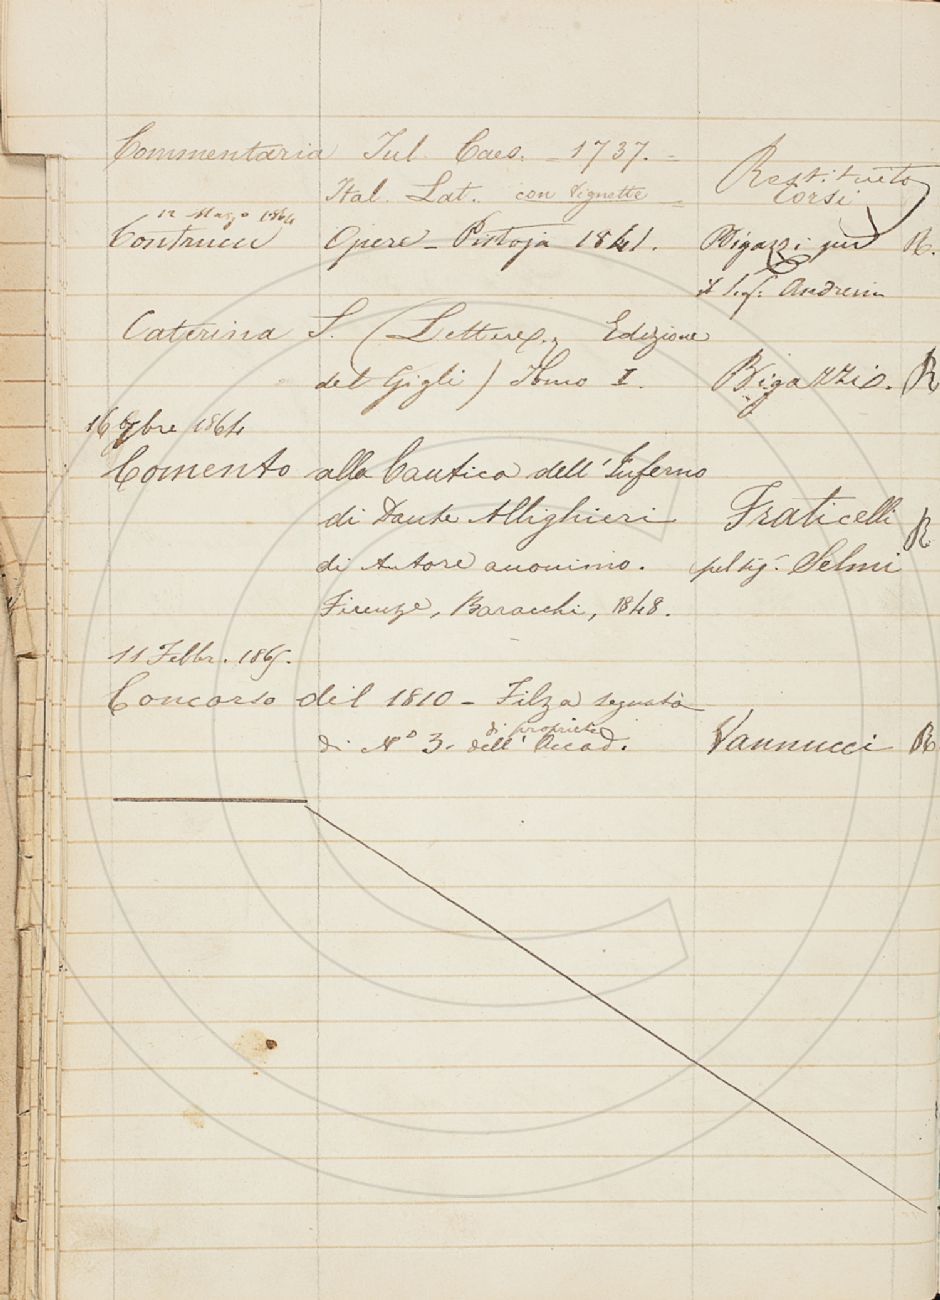 Commentaria Jul. Caes. - 1737. -
Ital. Lat. con vignette - Restituito
Corsi
12 Marzo 1864
Contrucci Opere - Pistoja 1841. Bigazzi per R.
il Sig. Andreini
Caterina S. (Lettere, Edizione
del Gigli) Tomo I. Bigazzi. R
16 9bre 1864
Comento alla Cantica dell'Inferno
di Dante Allighieri Fraticelli R
di Autore anonimo. pel Sig. Selmi
Firenze, Baracchi, 1848.
11 Febbr. 1865.
Concorso del 1810 - Filza segnata
di proprietà
di No 3. dell'Accad. Vannucci R